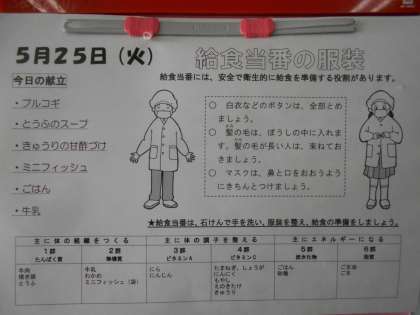 5月25日（火）
給食当番の服装
給食当番には、安全で衛生的に給食を準備する役割があります。
今日の献立
・プルコギ
・とうふのスープ
・きゅうりの甘酢づけ
・ミニフィッシュ
・ごはん
・牛乳
○ 白衣などのボタンは、全部とめ
ましょう。
○ 髪の毛は、ぼうしの中に入れま
す。髪の毛が長い人は、束ねてお
きましょう。
○ マスクは、鼻と口をおおうよう
にきちんとつけましょう。
★給食当番は、石けんで手を洗い、服装を整え、給食の準備をしましょう。
主に体の組織をつくる 主に体の調子を整える 主にエネルギーになる
1群 2群 3群 4群 5群 6群
たんぱく質 無機質 ビタミンA ビタミンC 炭水化物 脂質
牛肉 牛乳 にら たまねぎ、しょうが ごはん ごま油
焼き豚 わかめ にんじん にんにく 砂糖 ごま
とうふ ミニフィッシュ（袋） もやし
えのきたけ
きゅうり